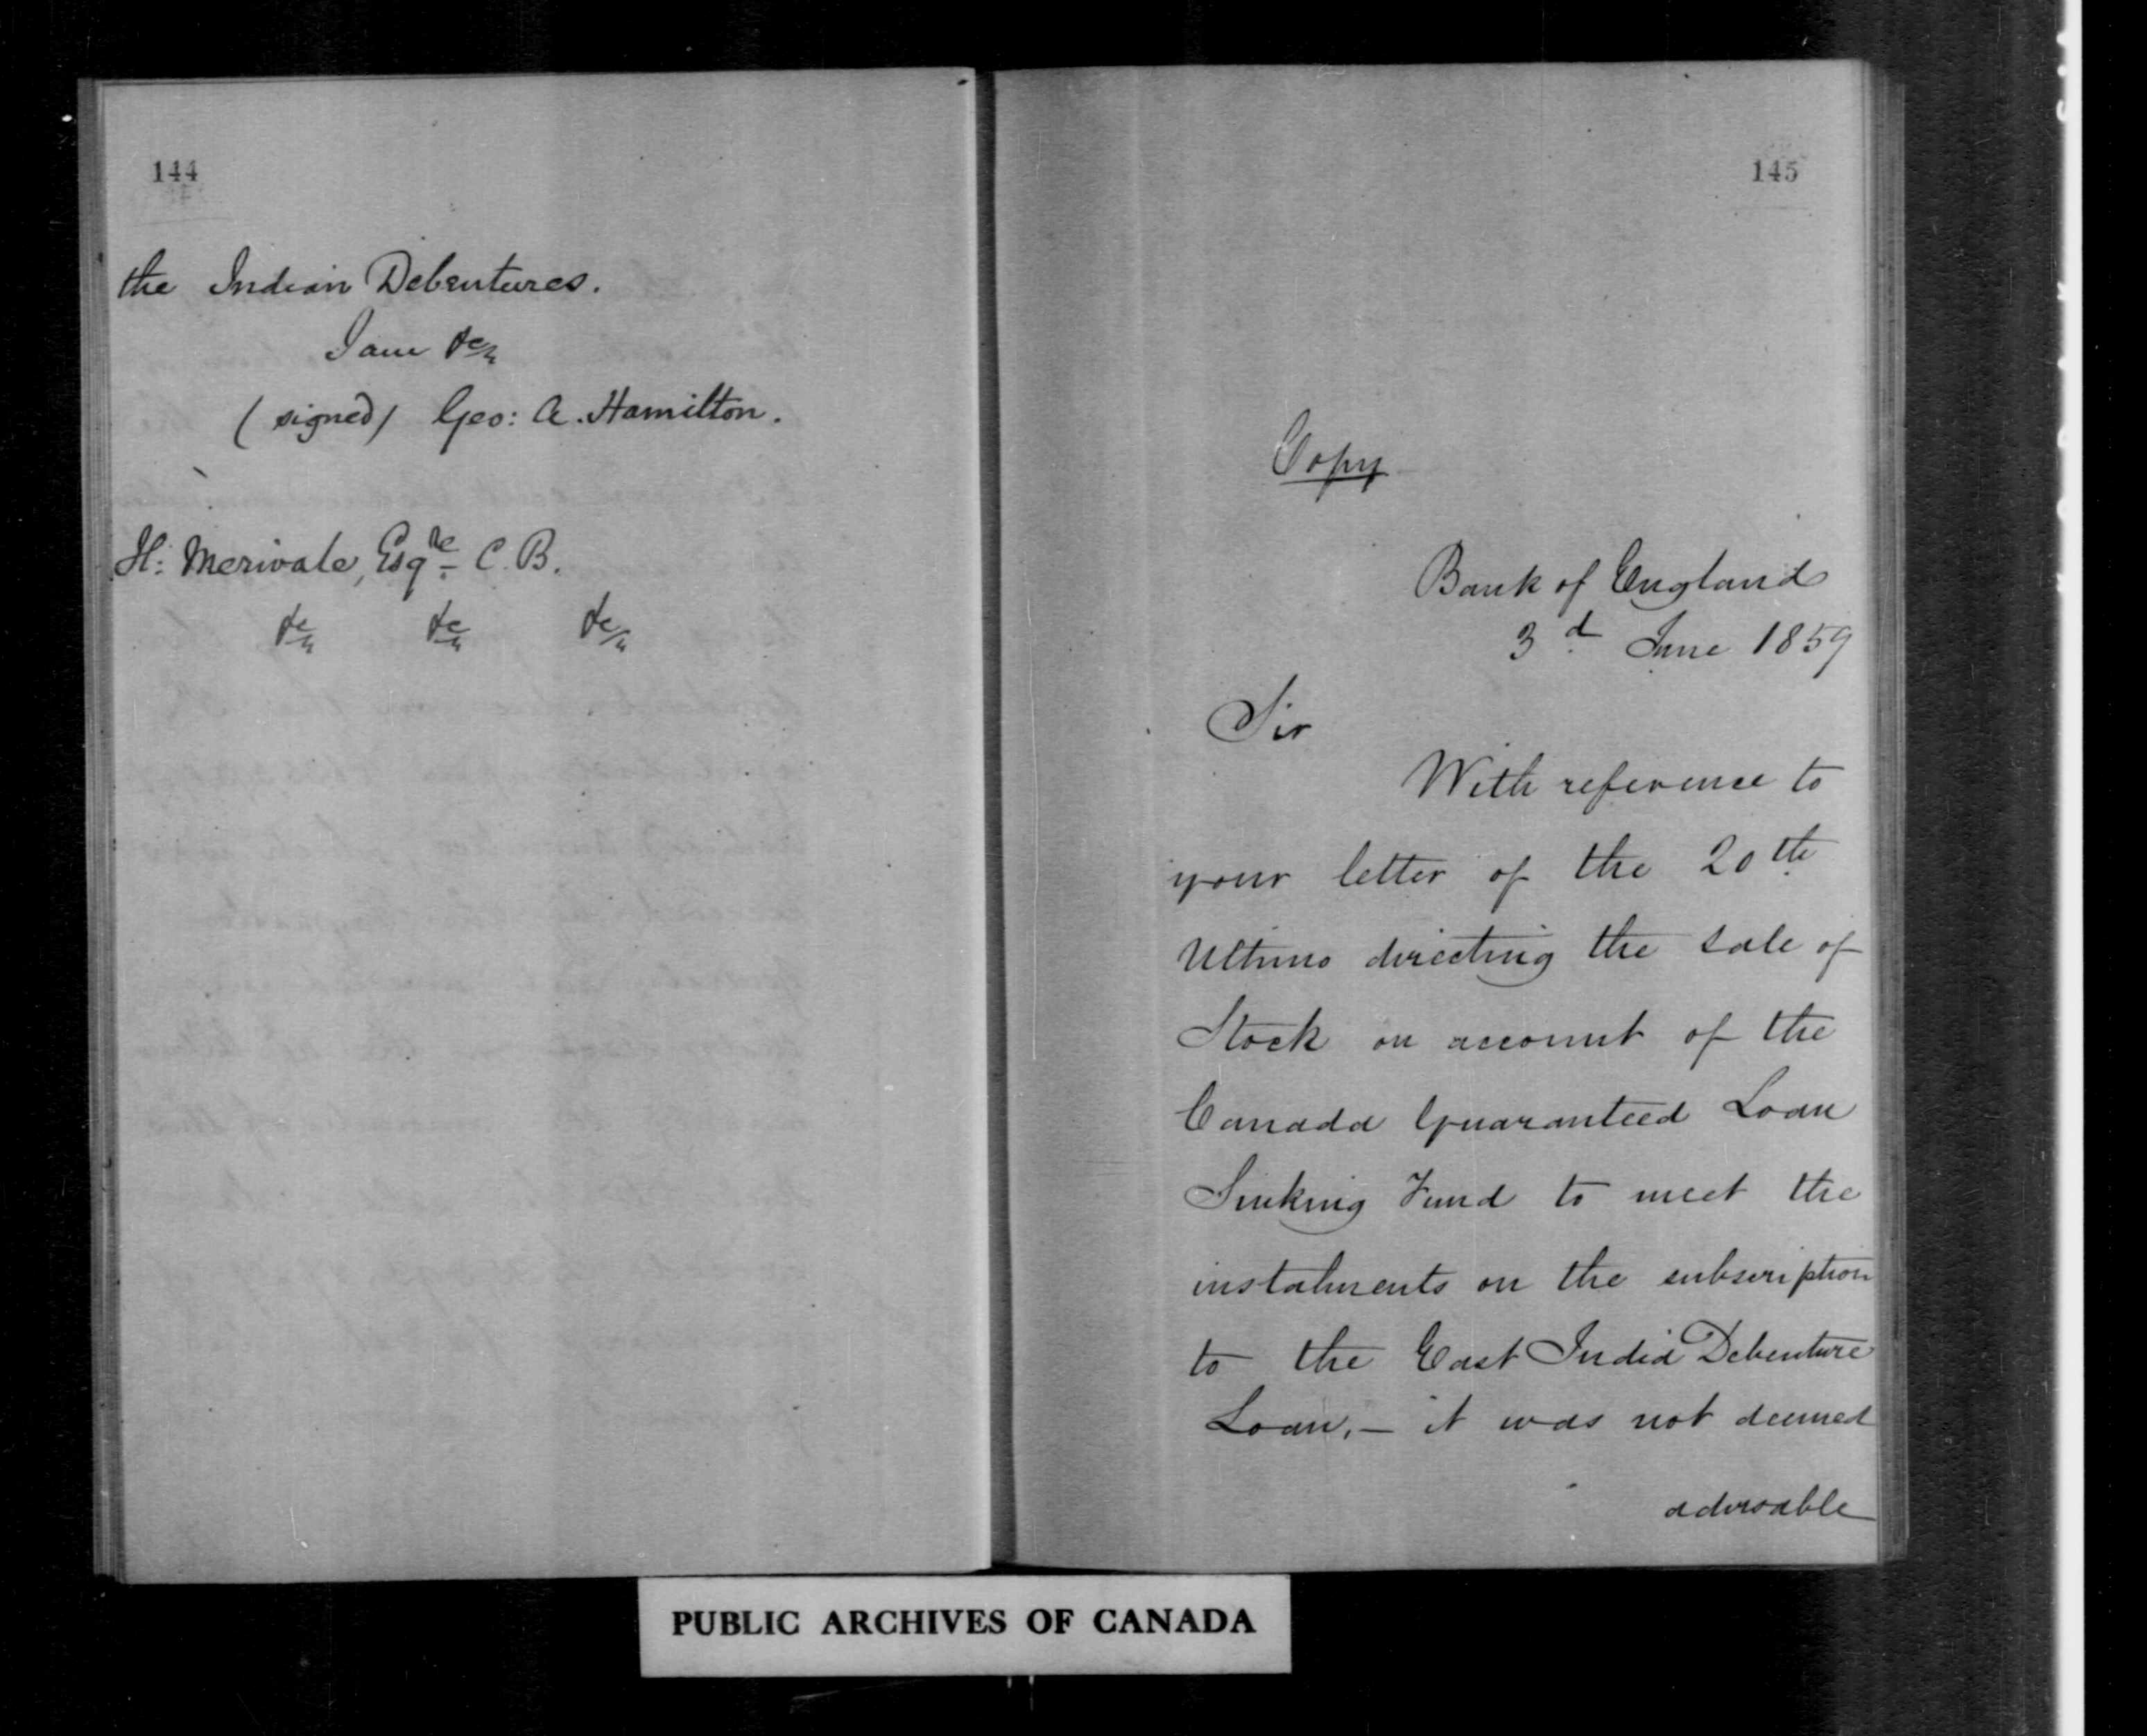 144
the Indian Debentures.
I am &c
(signed) Geo: A. Hamilton.
H: Merivale, Esqre C.B.
&c &c &c
145
Copy
Bank of England
3d June 1859
Sir
With reference to
your letter of the 20th
Ultimo directing the sale of
Stock on account of the
Canada Guaranteed Loan
Sinking Fund to meet the
instalments on the subscription
to the East India Debenture
Loan, — it was not deemed
advisable
PUBLIC ARCHIVES OF CANADA